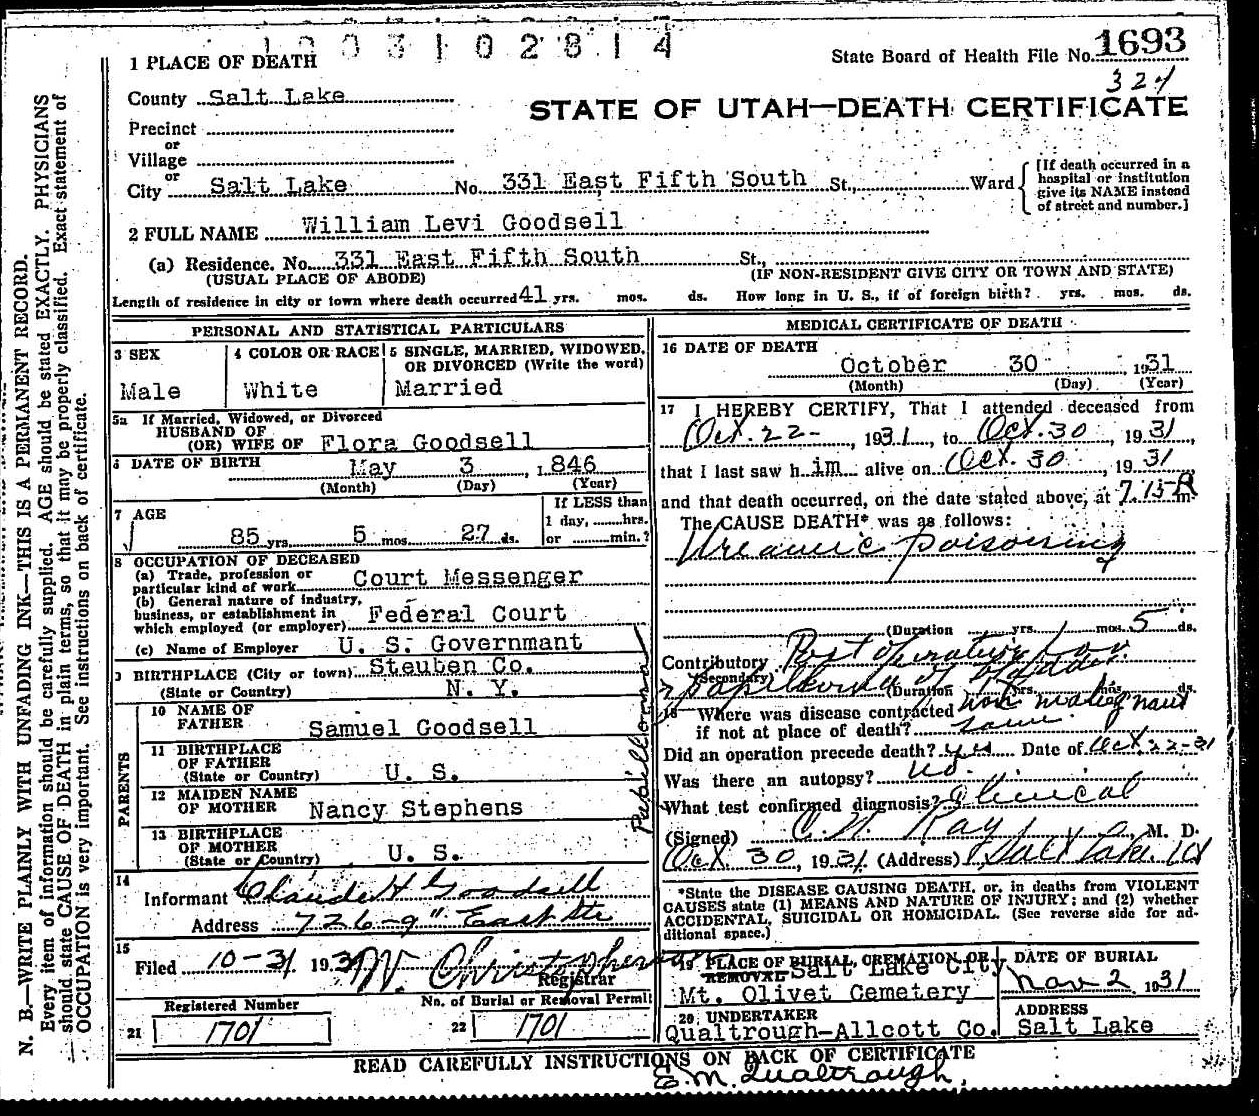 1003102814
State Board of Health File No. 1693
324
STATE OF UTAH—DEATH CERTIFICATE
1 PLACE OF DEATH
County Salt Lake
Precinct
or
Village
or
City Salt Lake No. 331 East Fifth South St., Ward
[If death occurred in a
hospital or institution
give its NAME instead
of street and number.]
2 FULL NAME William Levi Goodsell
(a) Residence. No. 331 East Fifth South St.,
(USUAL PLACE OF ABODE) (IF NON-RESIDENT GIVE CITY OR TOWN AND STATE)
Length of residence in city or town where death occurred 41 yrs. mos. ds. How long in U. S., if of foreign birth? yrs. mos. ds.
PERSONAL AND STATISTICAL PARTICULARS
3 SEX
Male
4 COLOR OR RACE
White
5 SINGLE, MARRIED, WIDOWED,
OR DIVORCED (Write the word)
Married
5a If Married, Widowed, or Divorced
HUSBAND OF
(OR) WIFE OF Flora Goodsell
6 DATE OF BIRTH May 3, 1846
(Month) (Day) (Year)
7 AGE
85 yrs. 5 mos. 27 ds.
If LESS than
1 day, hrs.
or min.?
8 OCCUPATION OF DECEASED
(a) Trade, profession or
particular kind of work Court Messenger
(b) General nature of industry,
business, or establishment in
which employed (or employer) Federal Court
(c) Name of Employer U. S. Governmant
9 BIRTHPLACE (City or town) Steuben Co.
(State or Country) N. Y.
PARENTS
10 NAME OF
FATHER Samuel Goodsell
11 BIRTHPLACE
OF FATHER
(State or Country) U. S.
12 MAIDEN NAME
OF MOTHER Nancy Stephens
13 BIRTHPLACE
OF MOTHER
(State or Country) U. S.
14
Informant Claude H Goodsell
Address 726-9" East
15
Filed 10-31 193 W. Christopherson
Registrar
Registered Number
21 1701
No. of Burial or Removal Permit
22 1701
MEDICAL CERTIFICATE OF DEATH
16 DATE OF DEATH
October 30, 1931
(Month) (Day) (Year)
17 I HEREBY CERTIFY, That I attended deceased from
Oct. 22-, 1931, to Oct. 30, 1931,
that I last saw him alive on Oct. 30, 1931
and that death occurred, on the date stated above, at 7.15 m
The CAUSE DEATH* was as follows:
Ureamic poisoning
(Duration yrs. mos. 5 ds.
Contributory Post operative for
(Secondary)
papilloma of bladder
(Duration yrs. mos. ds.
non malignant
18 Where was disease contracted
if not at place of death? same
Did an operation precede death? yes Date of Oct 22-31
Was there an autopsy? no.
What test confirmed diagnosis? Clinical
(Signed) Ray, M. D.
Oct. 30, 1931 (Address) Salt Lake
*State the DISEASE CAUSING DEATH, or, in deaths from VIOLENT
CAUSES state (1) MEANS AND NATURE OF INJURY; and (2) whether
ACCIDENTAL, SUICIDAL OR HOMICIDAL. (See reverse side for ad-
ditional space.)
19 PLACE OF BURIAL, CREMATION, OR
REMOVAL Salt Lake City
Mt. Olivet Cemetery
DATE OF BURIAL
Nov 2 1931
20 UNDERTAKER
Qualtrough-Allcott Co.
ADDRESS
Salt Lake
READ CAREFULLY INSTRUCTIONS ON BACK OF CERTIFICATE
E. M. Qualtrough.
Papilloma
N. B.—WRITE PLAINLY WITH UNFADING INK—THIS IS A PERMANENT RECORD.
Every item of information should be carefully supplied. AGE should be stated EXACTLY. PHYSICIANS
should state CAUSE OF DEATH in plain terms, so that it may be properly classified. Exact statement of
OCCUPATION is very important. See instructions on back of certificate.